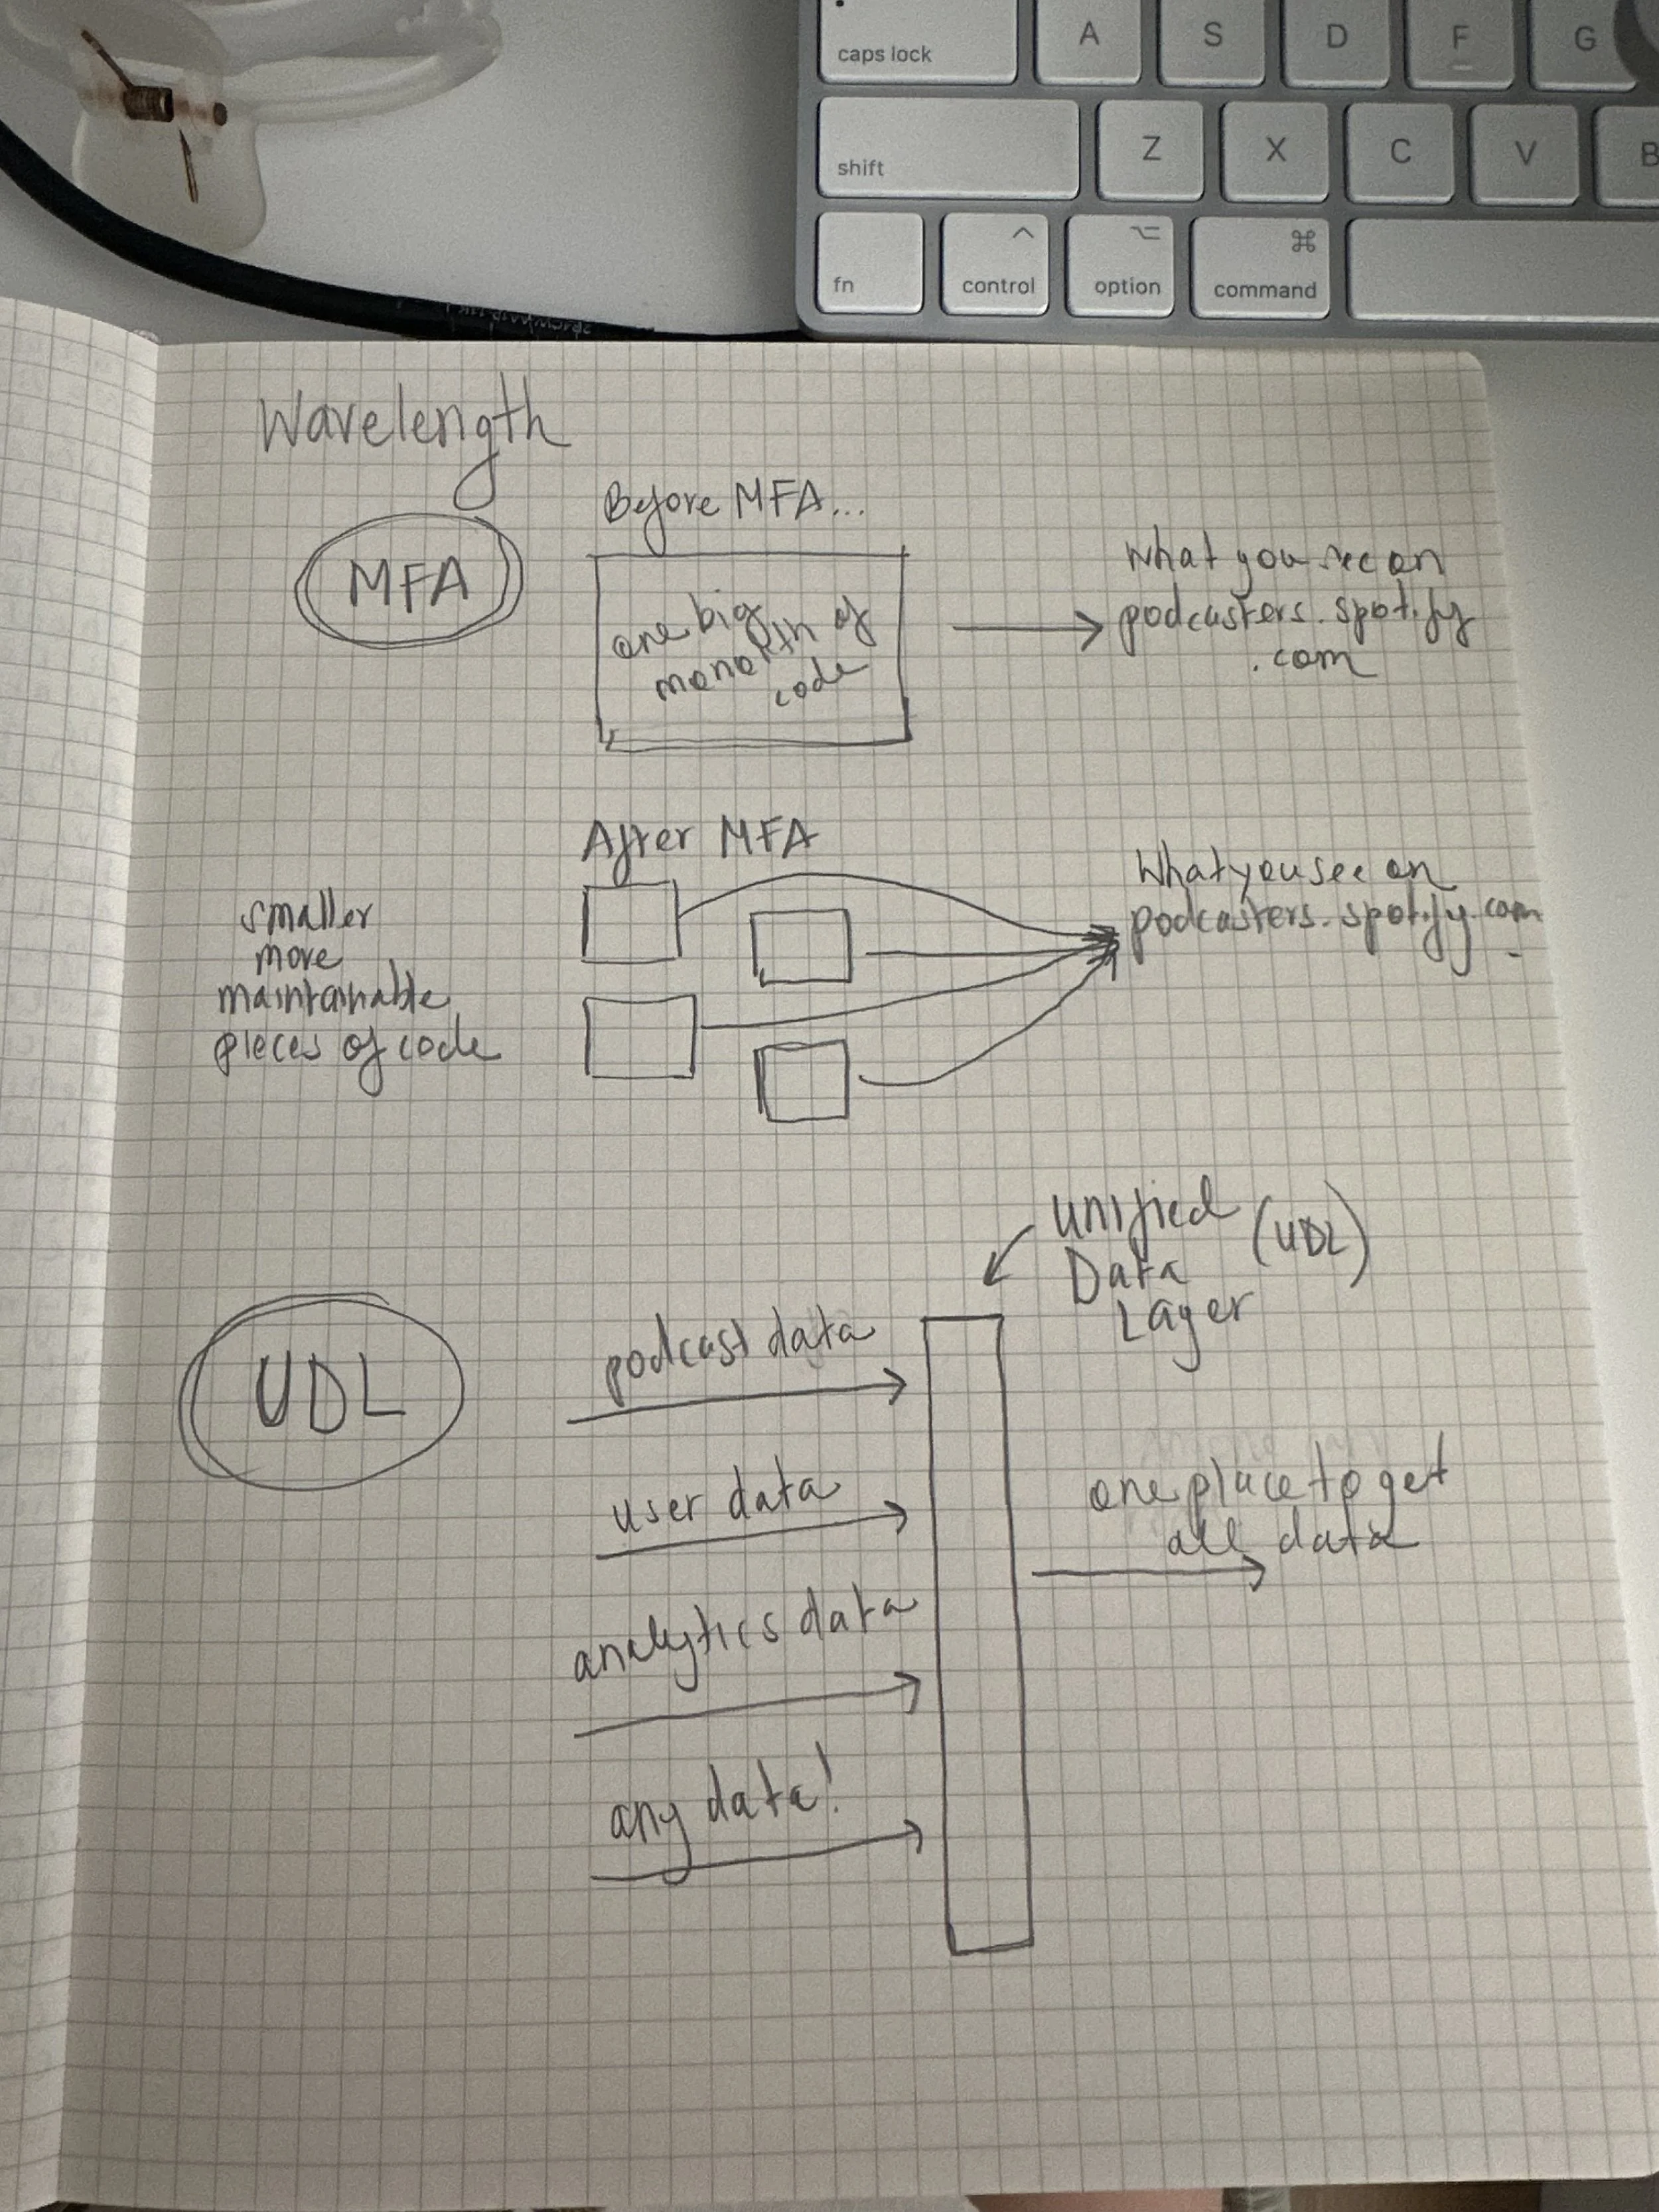 caps lock
A
S
D
F
G
shift
Z
X
C
V
B
fn
control
option
command
Wavelength
MFA
Before MFA...
one big
monolith of
code
What you see on
podcasters.spotify
.com
After MFA
smaller
more
maintainable
pieces of code
What you see on
podcasters.spotify.com
UDL
Unified
Data
Layer
(UDL)
podcast data
user data
analytics data
any data!
one place to get
all data